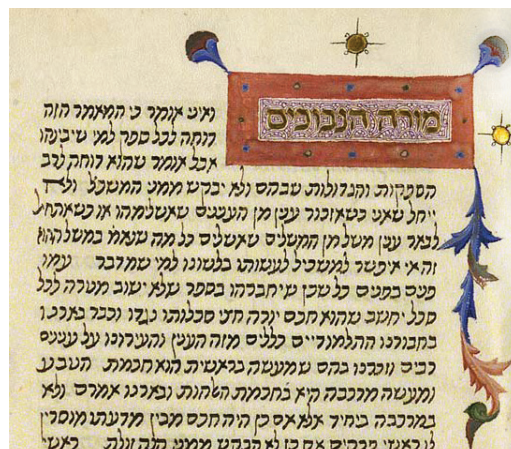 מורה הנבוכים
ואיני אומר כי המאמר הזה
דוחה לכל ספק למי שיבינהו
אבל אומר שהוא דוחה לרב
הספקות והגדולות שבהם ולא יבקש ממני המשכיל ולא
ייחל שאני כשאזכור ענין מן הענינים שאשלימהו או כשאתחיל
לבאר ענין משל מן המשלים שאשלים כל מה שנאמר במשל ההוא
זה אי איפשר למשכיל לעשותו בלשונו למי שמדבר עמו
פנים בפנים כל שכן שיחברהו בספר שלא ישוב מטרה לכל
סכל יחשוב שהוא חכם יורה חצי סכלותו נגדו וכבר בארנו
בחבורנו התלמודיים כללים מזה הענין והעירונו על ענינים
רבים וזכרנו בהם שמעשה בראשית הוא חכמת הטבע
ומעשה מרכבה היא בחכמת האלהות ובארנו אמרם ולא
במרכבה ביחיד אלא אם כן היה חכם מבין מדעתו מוסרין
לו ראשי פרקים אם כן לא תבקש ממני הנה זולת ראשי